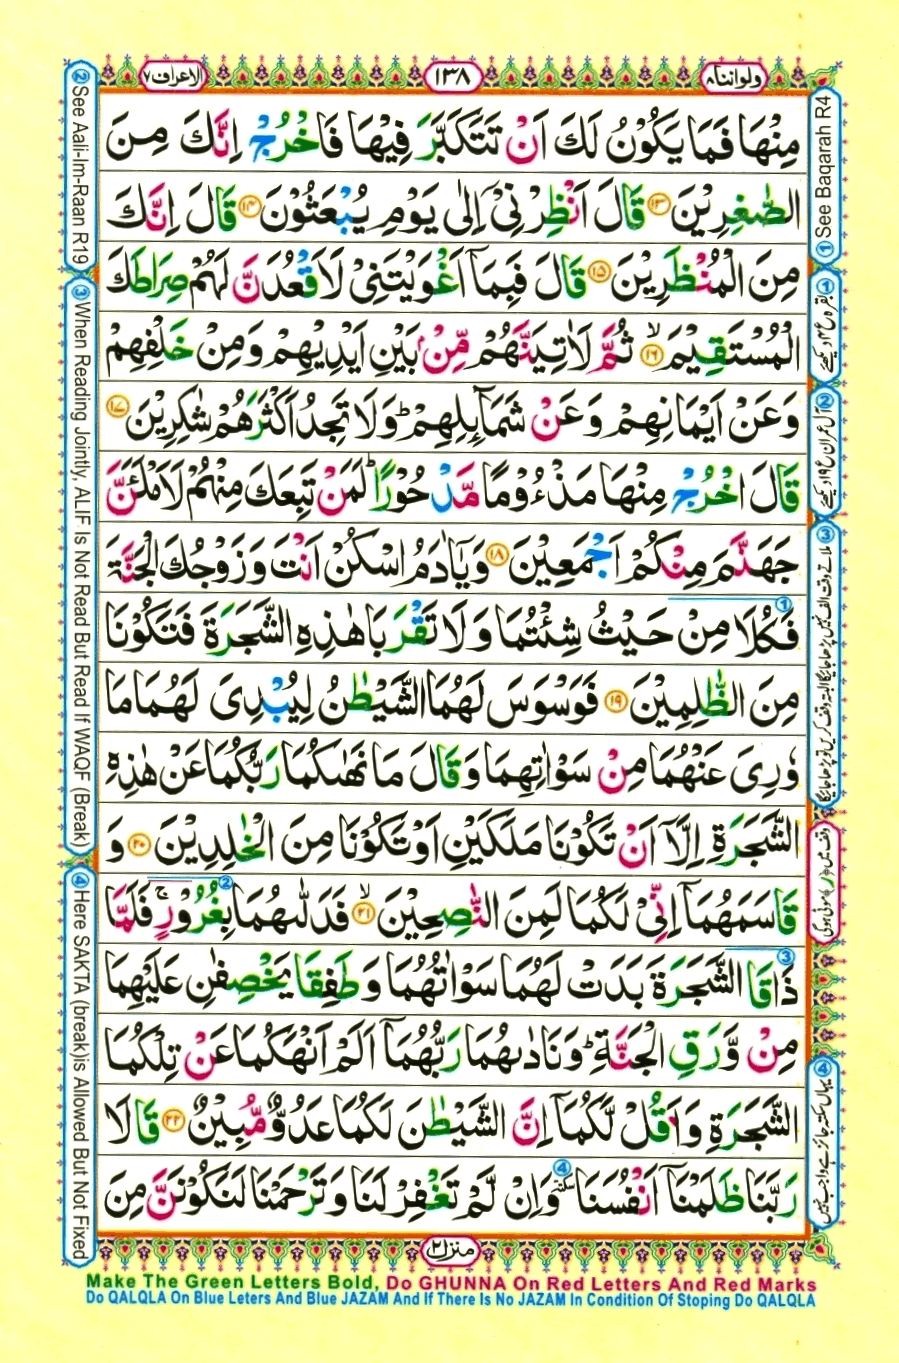 ولواننا۸
۱۳۸
الاعراف۷
مِنْهَا فَمَا يَكُوْنُ لَكَ اَنْ تَتَكَبَّرَ فِيْهَا فَاخْرُجْ اِنَّكَ مِنَ
الصّٰغِرِيْنَ ﴿۱۳﴾ قَالَ اَنْظِرْنِيْۤ اِلٰى يَوْمِ يُبْعَثُوْنَ ﴿۱۴﴾ قَالَ اِنَّكَ
مِنَ الْمُنْظَرِيْنَ ﴿۱۵﴾ قَالَ فَبِمَاۤ اَغْوَيْتَنِيْ لَاَقْعُدَنَّ لَهُمْ صِرَاطَكَ
الْمُسْتَقِيْمَ ۙ﴿۱۶﴾ ثُمَّ لَاٰتِيَنَّهُمْ مِّنْۢ بَيْنِ اَيْدِيْهِمْ وَمِنْ خَلْفِهِمْ
وَعَنْ اَيْمَانِهِمْ وَعَنْ شَمَآئِلِهِمْ ؕ وَلَا تَجِدُ اَكْثَرَهُمْ شٰكِرِيْنَ ﴿۱۷﴾
قَالَ اخْرُجْ مِنْهَا مَذْءُوْمًا مَّدْحُوْرًا ؕ لَمَنْ تَبِعَكَ مِنْهُمْ لَاَمْلَـَٔنَّ
جَهَنَّمَ مِنْكُمْ اَجْمَعِيْنَ ﴿۱۸﴾ وَيٰۤاٰدَمُ اسْكُنْ اَنْتَ وَزَوْجُكَ الْجَنَّةَ
فَكُلَا مِنْ حَيْثُ شِئْتُمَا وَلَا تَقْرَبَا هٰذِهِ الشَّجَرَةَ فَتَكُوْنَا ①
مِنَ الظّٰلِمِيْنَ ﴿۱۹﴾ فَوَسْوَسَ لَهُمَا الشَّيْطٰنُ لِيُبْدِيَ لَهُمَا مَا
وٗرِيَ عَنْهُمَا مِنْ سَوْاٰتِهِمَا وَقَالَ مَا نَهٰىكُمَا رَبُّكُمَا عَنْ هٰذِهِ
الشَّجَرَةِ اِلَّاۤ اَنْ تَكُوْنَا مَلَكَيْنِ اَوْ تَكُوْنَا مِنَ الْخٰلِدِيْنَ ﴿۲۰﴾ وَ
قَاسَمَهُمَاۤ اِنِّيْ لَكُمَا لَمِنَ النّٰصِحِيْنَ ۙ﴿۲۱﴾ فَدَلّٰىهُمَا بِغُرُوْرٍ ۚ ② فَلَمَّا
ذَاقَا ③ الشَّجَرَةَ بَدَتْ لَهُمَا سَوْاٰتُهُمَا وَطَفِقَا يَخْصِفٰنِ عَلَيْهِمَا
مِنْ وَّرَقِ الْجَنَّةِ ؕ وَنَادٰىهُمَا رَبُّهُمَاۤ اَلَمْ اَنْهَكُمَا عَنْ تِلْكُمَا
الشَّجَرَةِ وَاَقُلْ لَّكُمَاۤ اِنَّ الشَّيْطٰنَ لَكُمَا عَدُوٌّ مُّبِيْنٌ ﴿۲۲﴾ قَالَا
رَبَّنَا ظَلَمْنَاۤ اَنْفُسَنَا سكتة ④ وَاِنْ لَّمْ تَغْفِرْ لَنَا وَتَرْحَمْنَا لَنَكُوْنَنَّ مِنَ
منزل۲
① See Baqarah R4
② See Aali-Im-Raan R19
③ When Reading Jointly, ALIF Is Not Read But Read If WAQF (Break)
④ Here SAKTA (break)is Allowed But Not Fixed
① بقرہ ع۴ دیکھئے
② آل عمران ع۱۹ دیکھئے
④ یہاں سکتہ جائز ہے واجب نہیں
Make The Green Letters Bold, Do GHUNNA On Red Letters And Red Marks
Do QALQLA On Blue Leters And Blue JAZAM And If There Is No JAZAM In Condition Of Stoping Do QALQLA